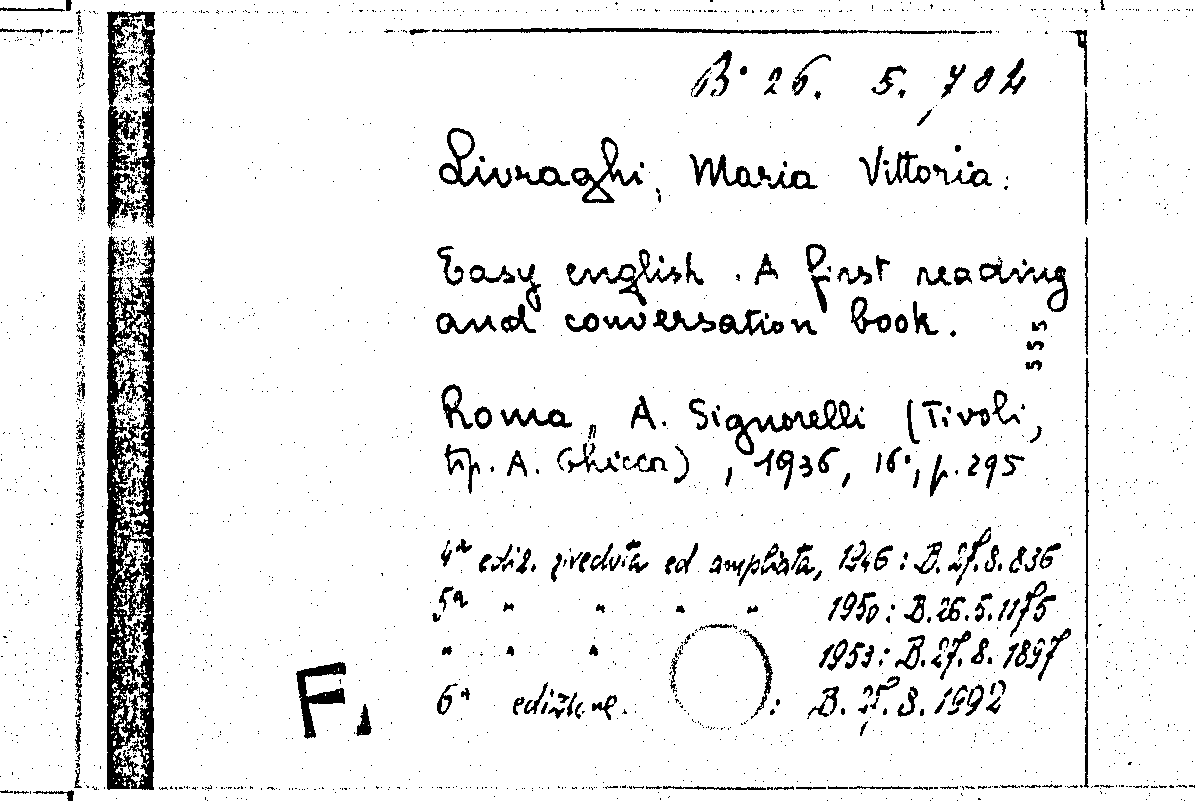 B° 26. 5. 704
Livraghi, Maria Vittoria.
Easy english. A first reading
and conversation book.
555
Roma, A. Signorelli (Tivoli,
tip. A. Chicca), 1936, 16°, p. 295
4ª ediz. riveduta ed ampliata, 1946: B. 27. 8. 836
5ª " " " " 1950: B. 26. 5. 1175
" " " 1953: B. 27. 8. 1897
6ª edizione. : B. 27. 8. 1992
F.